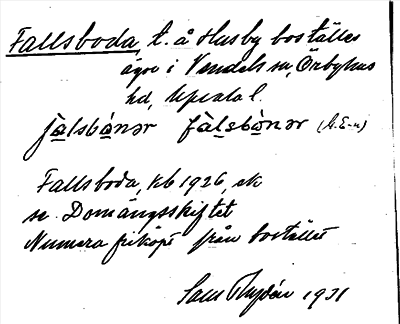 Fallsboda, t. å Husby boställes
ägor i Vendels sn, Örbyhus
hd, Upsala l.
fàlsbònər fàlsbònər (A.E-n)
Fallsboda, kb 1926, ek
se Domänsskiftet
Numera friköpt från bostället
Sam Rydén 1931